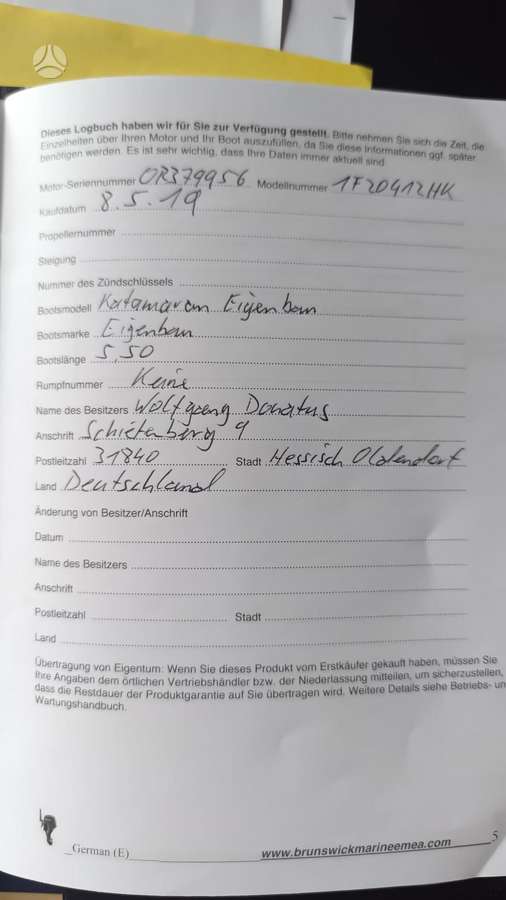 Dieses Logbuch haben wir für Sie zur Verfügung gestellt. Bitte nehmen Sie sich die Zeit, die
Einzelheiten über Ihren Motor und Ihr Boot auszufüllen, da Sie diese Informationen ggf. später
benötigen werden. Es ist sehr wichtig, dass Ihre Daten immer aktuell sind.
Motor-Seriennummer OR379956 Modellnummer 1F20412HK
Kaufdatum 8.5.19
Propellernummer
Steigung
Nummer des Zündschlüssels
Bootsmodell Katamaran Eigenbau
Bootsmarke Eigenbau
Bootslänge 5,50
Rumpfnummer Keine
Name des Besitzers Wolfgang Donatus
Anschrift Schieferberg 9
Postleitzahl 31840 Stadt Hessisch Oldendorf
Land Deutschland
Änderung von Besitzer/Anschrift
Datum
Name des Besitzers
Anschrift
Postleitzahl Stadt
Land
Übertragung von Eigentum: Wenn Sie dieses Produkt vom Erstkäufer gekauft haben, müssen Sie
Ihre Angaben dem örtlichen Vertriebshändler bzw. der Niederlassung mitteilen, um sicherzustellen,
dass die Restdauer der Produktgarantie auf Sie übertragen wird. Weitere Details siehe Betriebs- un
Wartungshandbuch.
German (E) www.brunswickmarineemea.com 5